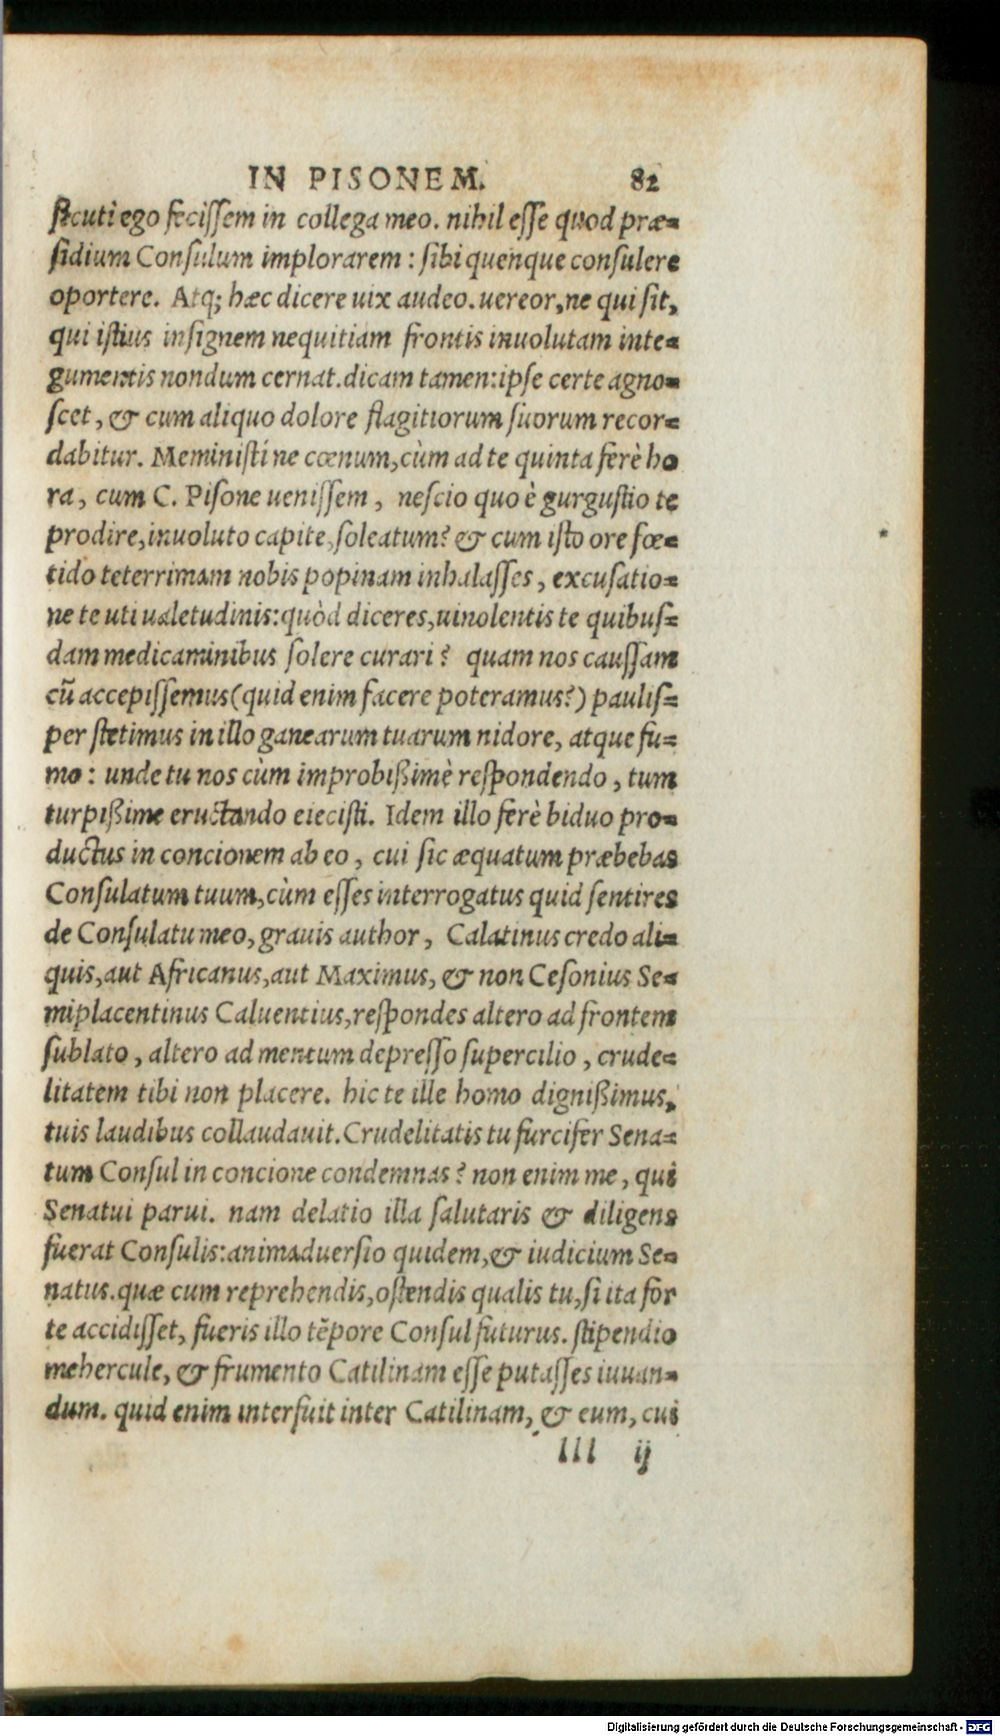 IN PISONEM. 82
sicuti ego fecissem in collega meo. nihil esse quod præ-
sidium Consulum implorarem : sibi quenque consulere
oportere. Atq; hæc dicere uix audeo. uereor, ne qui sit,
qui istius insignem nequitiam frontis inuolutam inte-
gumentis nondum cernat. dicam tamen: ipse certe agno-
scet, & cum aliquo dolore flagitiorum suorum recor-
dabitur. Meministi ne cœnum, cùm ad te quinta ferè ho
ra, cum C. Pisone uenissem, nescio quo è gurgustio te
prodire, inuoluto capite, soleatum? & cum isto ore fœ-
tido teterrimam nobis popinam inhalasses, excusatio-
ne te uti ualetudinis: quòd diceres, uinolentis te quibus-
dam medicaminibus solere curari? quam nos caussam
cū accepissemus (quid enim facere poteramus?) paulis-
per stetimus in illo ganearum tuarum nidore, atque fu-
mo : unde tu nos cùm improbißimè respondendo, tum
turpißime eructando eiecisti. Idem illo ferè biduo pro-
ductus in concionem ab eo, cui sic æquatum præbebas
Consulatum tuum, cùm esses interrogatus quid sentires
de Consulatu meo, grauis author, Calatinus credo ali-
quis, aut Africanus, aut Maximus, & non Cesonius Se-
miplacentinus Caluentius, respondes altero ad frontem
sublato, altero ad mentum depresso supercilio, crude-
litatem tibi non placere. hic te ille homo dignißimus,
tuis laudibus collaudauit. Crudelitatis tu furcifer Sena-
tum Consul in concione condemnas? non enim me, qui
Senatui parui. nam delatio illa salutaris & diligens
fuerat Consulis: animaduersio quidem, & iudicium Se-
natus. quæ cum reprehendis, ostendis qualis tu, si ita for
te accidisset, fueris illo tēpore Consul futurus. stipendio
mehercule, & frumento Catilinam esse putasses iuuan-
dum. quid enim interfuit inter Catilinam, & eum, cui
lll ij
Digitalisierung gefördert durch die Deutsche Forschungsgemeinschaft - DFG